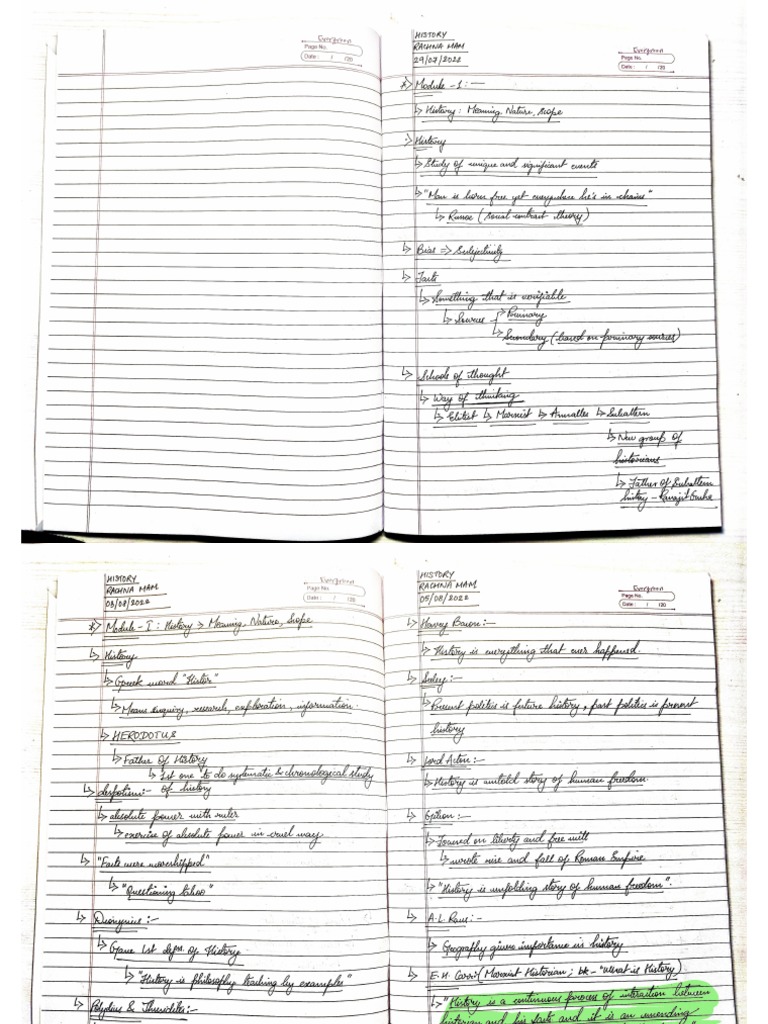 Evergreen
Page No.
Date: / /20
HISTORY
RACHNA MAM
29/07/2022
Evergreen
Page No.
Date: / /20
*) Module -1 :-
↳ History: Meaning, Nature, Scope
:) History
↳ Study of unique and significant events
↳ "Man is born free yet everywhere he's in chains"
↳ (social contract theory)
↳ Bias => Subjectivity
↳ Facts
↳ Something that is verifiable
↳ Sources
↳ Primary
↳ Secondary (based on primary sources)
↳ Schools of thought
↳ Way of thinking
↳ Elitist ↳ Marxist ↳ Annalles ↳ Subaltern
↳ New group of
historians
↳ Father of Subaltern
history - Ranajit Guha
HISTORY
RACHNA MAM
03/08/2022
Evergreen
Page No.
Date: / /20
*) Module - I : History > Meaning, Nature, Scope
↳ History
↳ Greek word "Histor"
↳ Means enquiry, research, exploration, information.
↳ HERODOTUS
↳ Father of History
↳ 1st one to do systematic & chronological study
of history
↳ despotism:-
↳ absolute power with ruler
↳ exercise of absolute power in cruel way
↳ "Facts were worshipped"
↳ "Questioning taboo"
↳ Dionysius:-
↳ Gave 1st dfn. of History
↳ "History is philosophy teaching by examples"
↳ Polybius &
HISTORY
RACHNA MAM
05/08/2022
Evergreen
Page No.
Date: / /20
↳ Henry :-
↳ History is everything that ever happened.
↳ :-
↳ Present politics is future history, past politics is present
history
↳ Lord Acton:-
↳ History is untold story of human freedom.
↳ :-
↳ Focused on liberty and free will
↳ wrote rise and fall of Roman Empire
↳ "History is unfolding story of human freedom".
↳ A.L. :-
↳ Geography gives importance in history
↳ E.H. Carr:- (Marxist Historian; bk - "What is History)
↳ "History is a continuous process of interaction between
historian and his facts and it is an unending